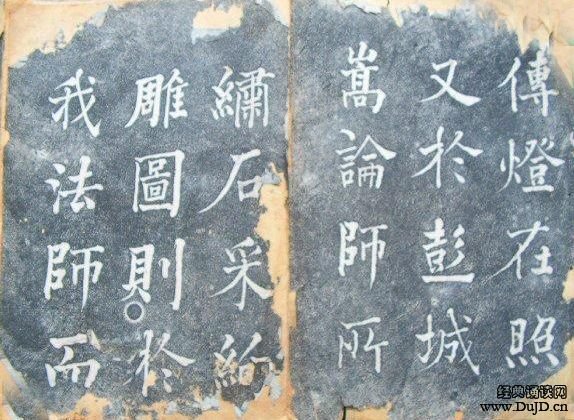 傳燈在照
又於彭城
嵩論師所
繡石采
雕圖則於
我法師而
经典诵读网
www.DujD.cn